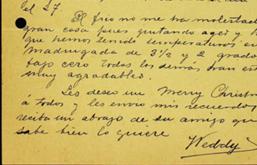 el 27
El frio no me ha molestado
gran cosa pues quitando ayer y
que hemos tenido temperaturas en
madrugada de 3½ y 2 grados
bajo cero todos los demás eran
muy agradables.
Les deseo un Merry Christm
á todos y les envio mis recuerdos
reciba un abrazo de su amigo que
sabe bien lo quiere
Weddy